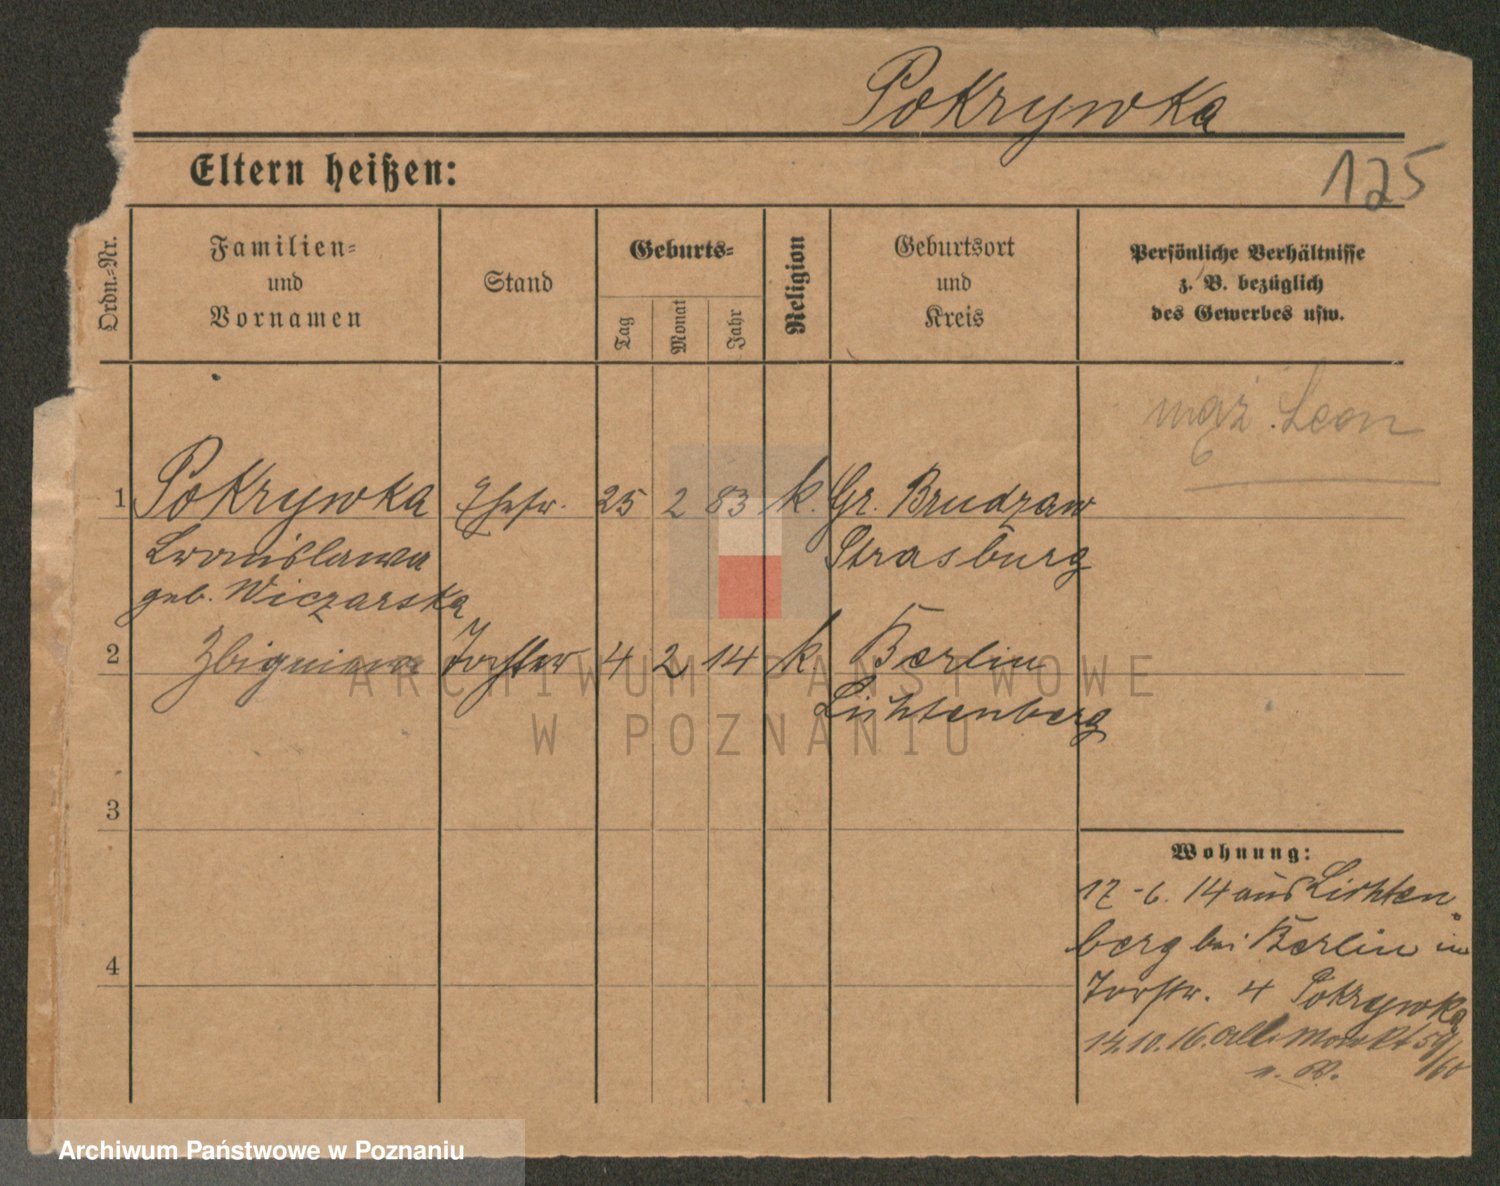 Pokrywka
125
Eltern heißen:
Ordn.-Nr.
Familien-
und
Vornamen
Stand
Geburts-
Tag
Monat
Jahr
Religion
Geburtsort
und
Kreis
Persönliche Verhältnisse
z. B. bezüglich
des Gewerbes usw.
mąż. Leon
1 Pokrywka Ehefr. 25 2 83 k. Gr. Brudzaw
Bronislawa Strasburg
geb. Wiczarska
2 Zbigniewa Tochter 4 2 14 k Berlin
Lichtenberg
3
4
Wohnung:
17-6. 14 aus Lichten
berg bei Berlin in
4 Pokrywka
14.10.16. Alt. Markt 59/60
ARCHIWUM PAŃSTWOWE
W POZNANIU
Archiwum Państwowe w Poznaniu